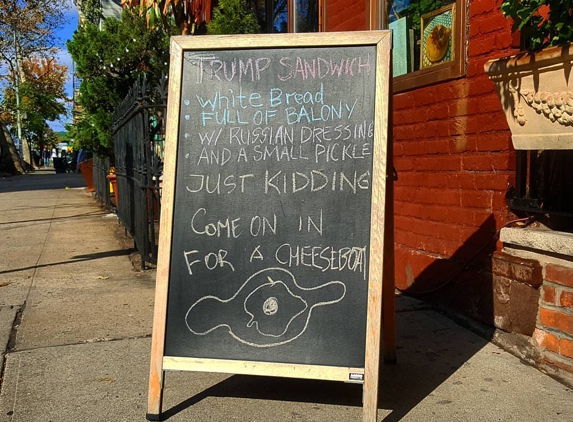 TRUMP SANDWICH
• White Bread
• FULL OF BALONY
• W/ RUSSIAN DRESSING
• AND A SMALL PICKLE
JUST KIDDING
COME ON IN
FOR A CHEESEBOAT